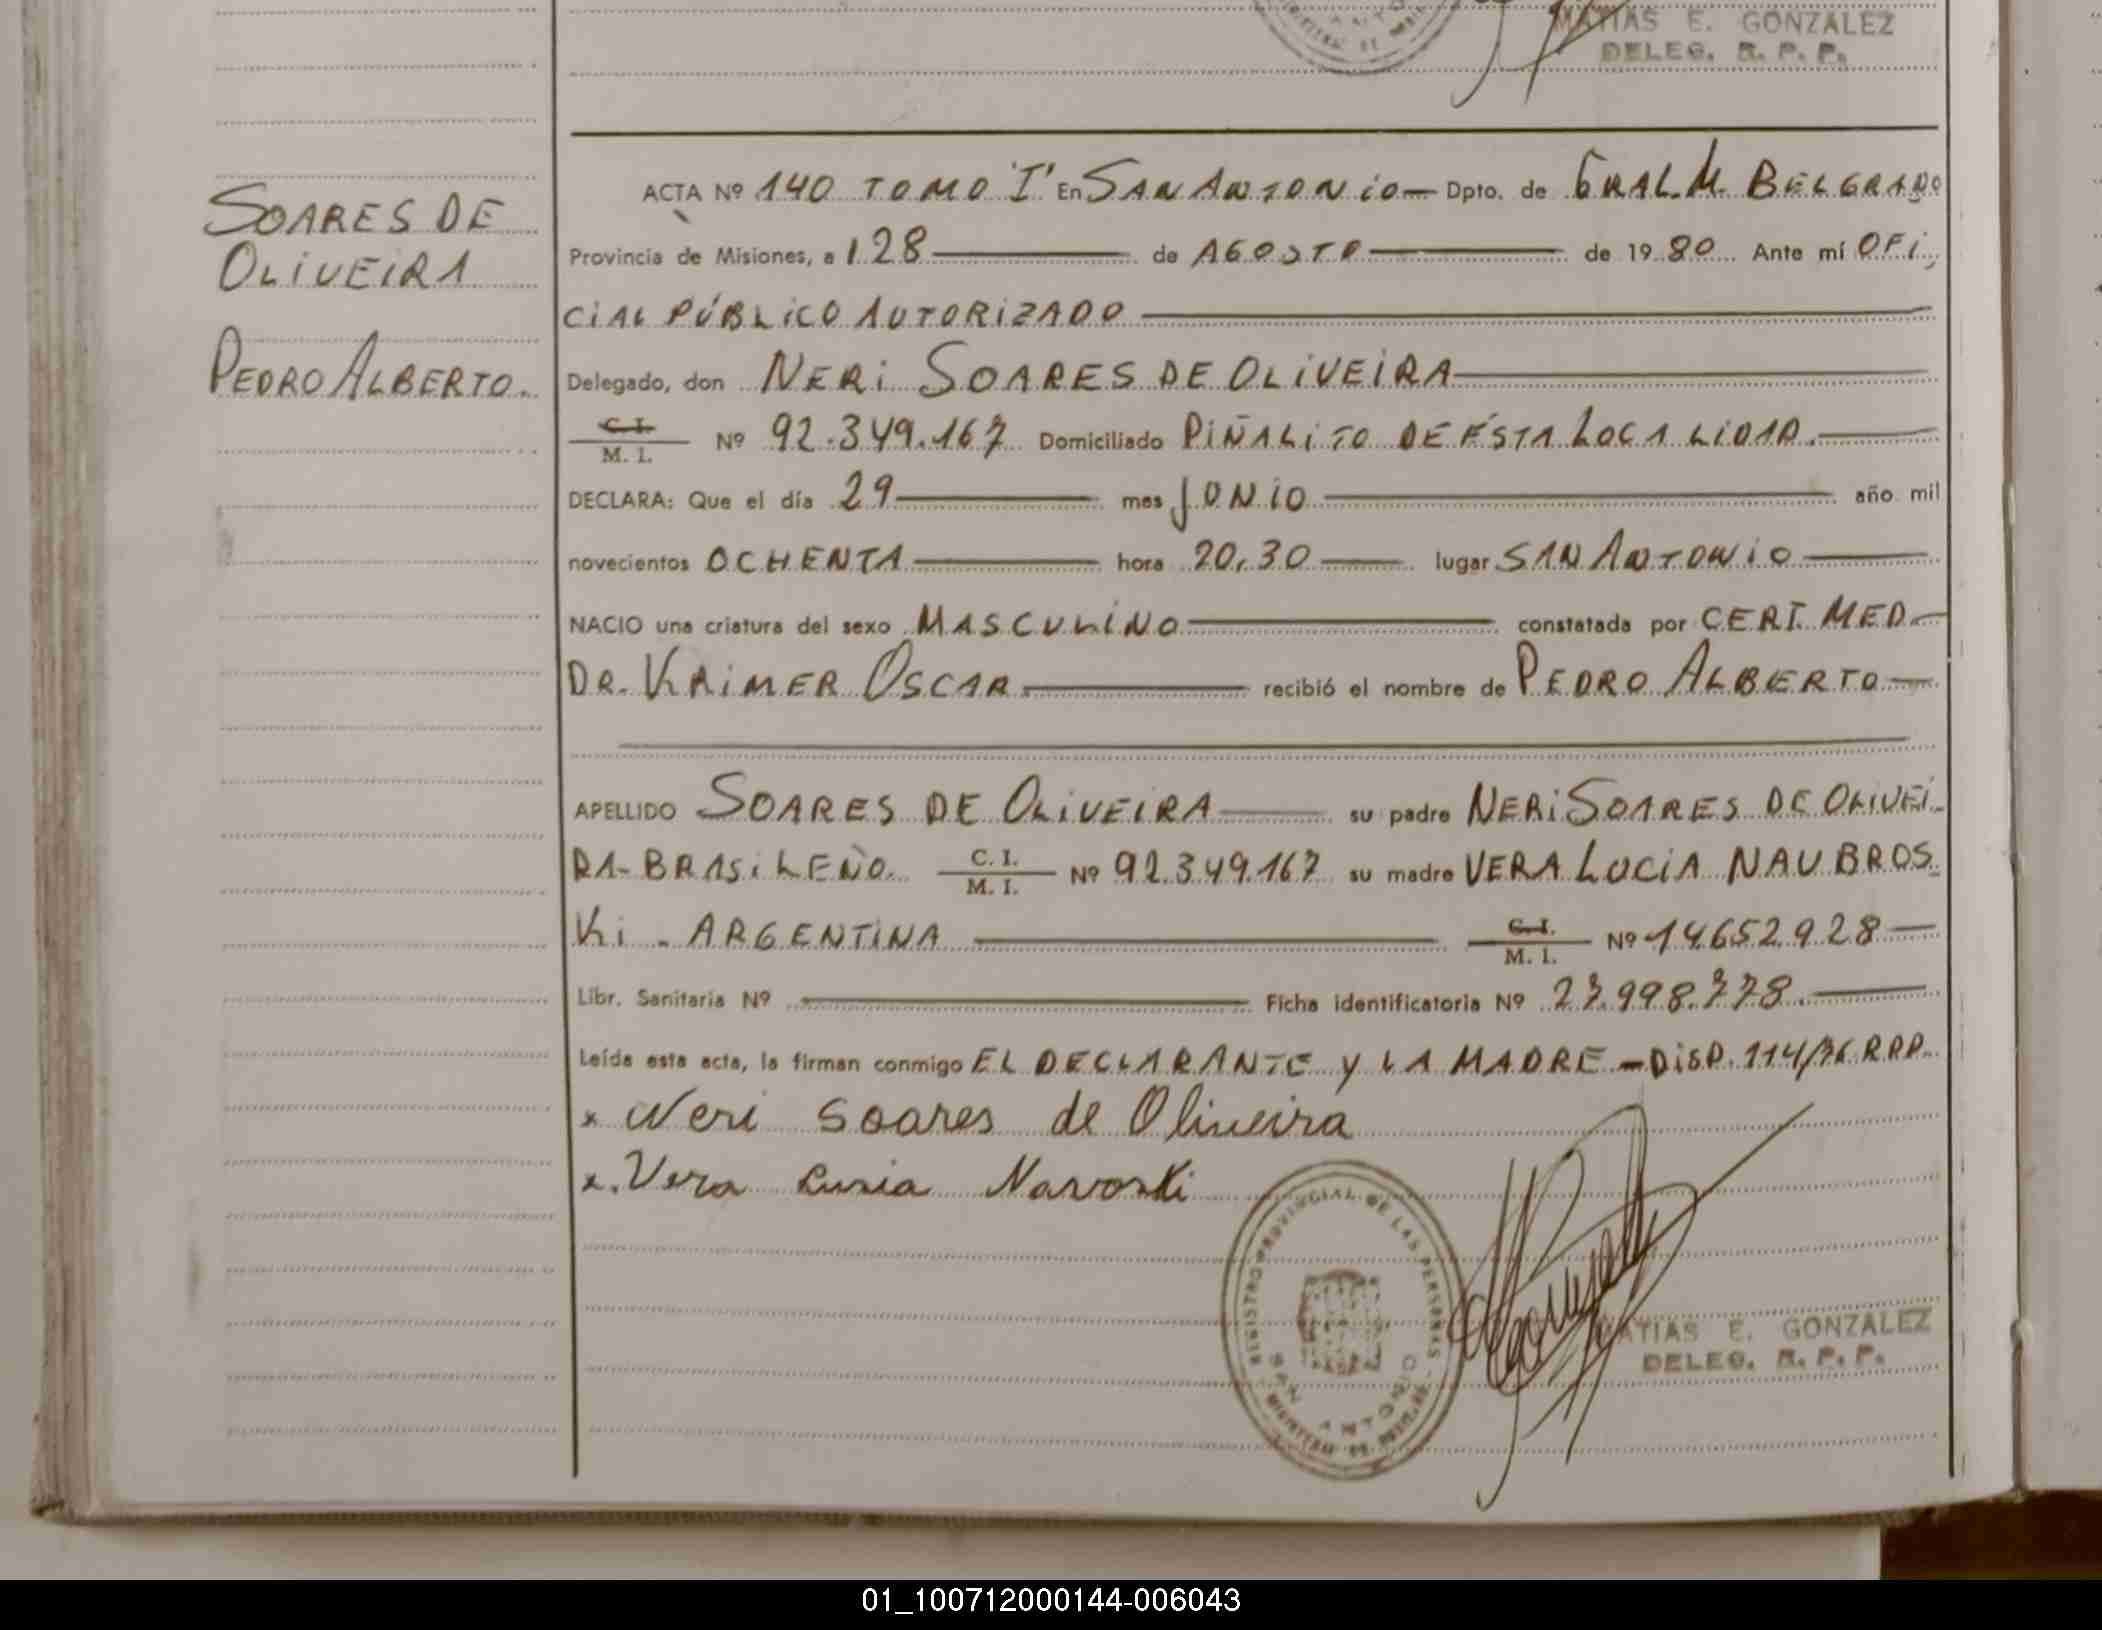 MATIAS E. GONZALEZ
DELEG. R. P. P.
SOARES DE
OLIVEIRA
PEDRO ALBERTO.
ACTA Nº 140 TOMO "I" En SAN ANTONIO — Dpto. de GRAL. M. BELGRANO
Provincia de Misiones, a 128 — de AGOSTO — de 1980 Ante mí OFI-
CIAL PÚBLICO AUTORIZADO —
Delegado, don NERI SOARES DE OLIVEIRA —
C. I.
M. I. Nº 92.349.167 Domiciliado PIÑALITO DE ÉSTA LOCALIDAD. —
DECLARA: Que el día 29 — mes JUNIO — año mil
novecientos OCHENTA — hora 20,30 — lugar SAN ANTONIO —
NACIO una criatura del sexo MASCULINO — constatada por CERT. MED —
DR. KRIMER OSCAR — recibió el nombre de PEDRO ALBERTO —
APELLIDO SOARES DE OLIVEIRA — su padre NERI SOARES DE OLIVEI-
RA - BRASILEÑO. C. I.
M. I. Nº 92.349.167 su madre VERA LUCIA NAUBROS
KI - ARGENTINA — C. I.
M. I. Nº 14.652.928 —
Libr. Sanitaria Nº — Ficha identificatoria Nº 27.998.778. —
Leída esta acta, la firman conmigo EL DECLARANTE y LA MADRE - DISP. 114/76 R.P.P.
x Neri Soares de Oliveira
x. Vera Lusia Navoski
REGISTRO PROVINCIAL DE LAS PERSONAS
SAN ANTONIO
MATIAS E. GONZALEZ
DELEG. R. P. P.
01_100712000144-006043